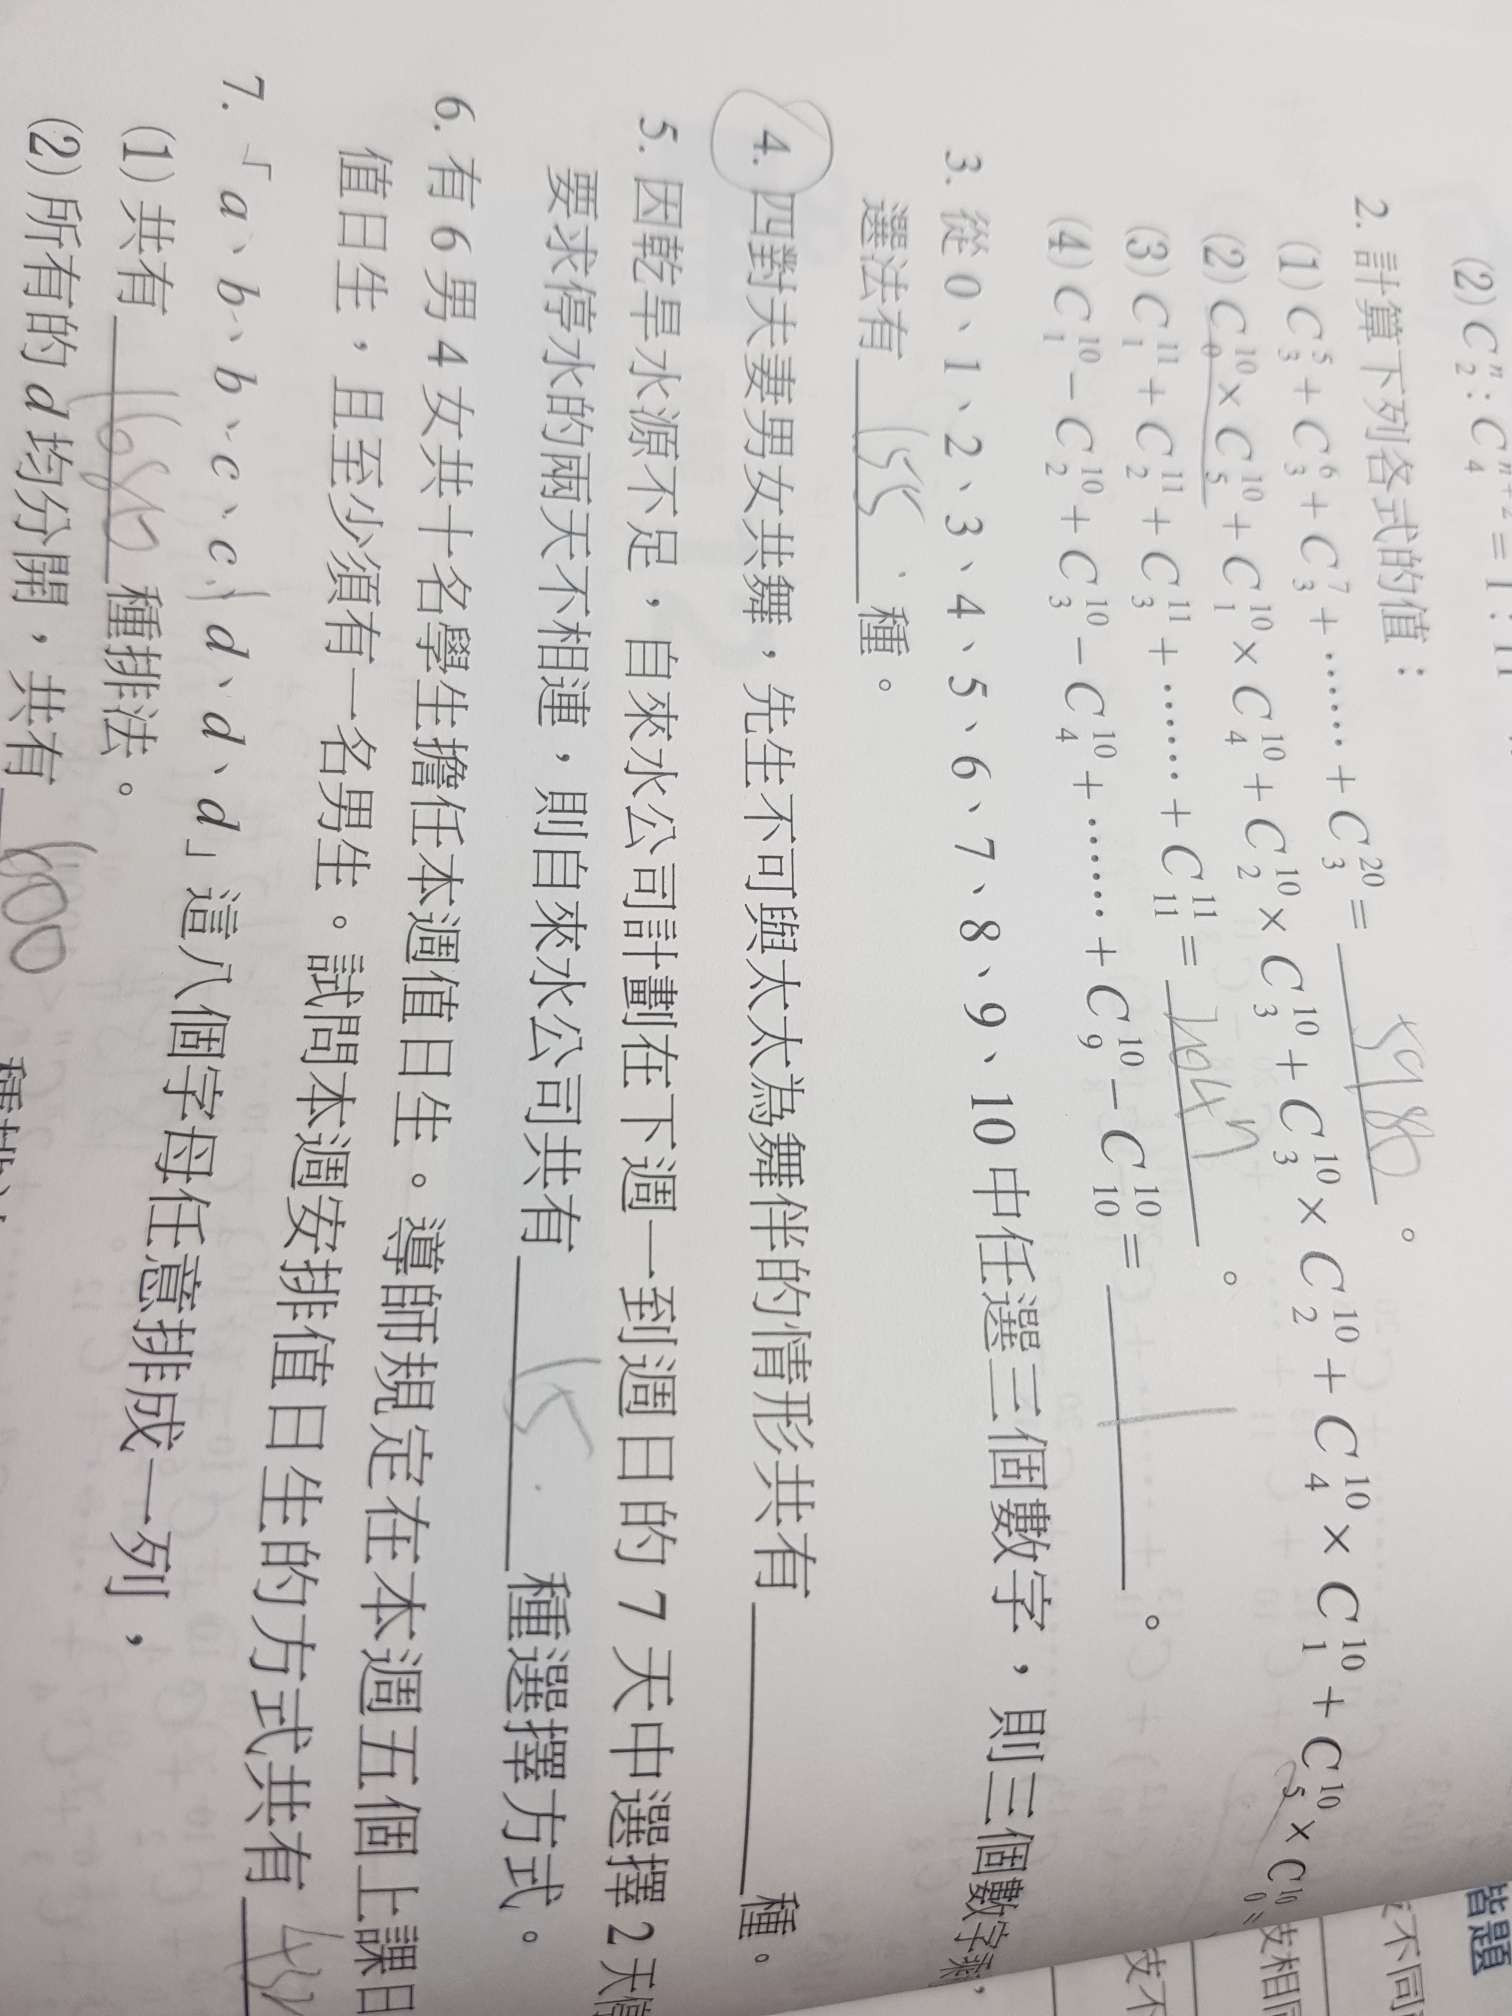 (2) C₂ⁿ : C₄ⁿ⁺² = 1 : 11
2. 計算下列各式的值：
(1) C₃⁵ + C₃⁶ + C₃⁷ + …… + C₃²⁰ = 5980 。
(2) C₀¹⁰ × C₅¹⁰ + C₁¹⁰ × C₄¹⁰ + C₂¹⁰ × C₃¹⁰ + C₃¹⁰ × C₂¹⁰ + C₄¹⁰ × C₁¹⁰ + C₅¹⁰ × C₀¹⁰ =
(3) C₁¹¹ + C₂¹¹ + C₃¹¹ + …… + C₁₁¹¹ = 2047 。
(4) C₁¹⁰ − C₂¹⁰ + C₃¹⁰ − C₄¹⁰ + …… + C₉¹⁰ − C₁₀¹⁰ = 1 。
3. 從 0、1、2、3、4、5、6、7、8、9、10 中任選三個數字，則三個數字乘
選法有 155 種。
4. 四對夫妻男女共舞，先生不可與太太為舞伴的情形共有 種。
5. 因乾旱水源不足，自來水公司計劃在下週一到週日的 7 天中選擇 2 天停
要求停水的兩天不相連，則自來水公司共有 15 種選擇方式。
6. 有 6 男 4 女共十名學生擔任本週值日生。導師規定在本週五個上課日
值日生，且至少須有一名男生。試問本週安排值日生的方式共有
7. 「a、b、b、c、c、d、d、d」這八個字母任意排成一列，
(1) 共有 1680 種排法。
(2) 所有的 d 均分開，共有 600 種排法
皆題
不同
技相同
技不